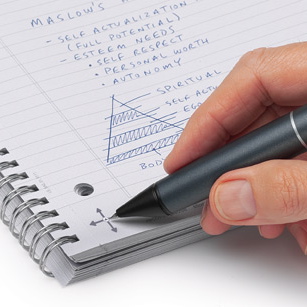 MASLOW'S
- SELF ACTUALIZATION
(FULL POTENTIAL)
- ESTEEM NEEDS
• SELF RESPECT
• PERSONAL WORTH
• AUTONOMY
SPIRITUAL
SELF
EGO
BODY